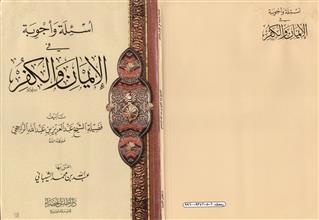 أسئلة وأجوبة
في
الإيمان والكفر
تأليف
فضيلة الشيخ عبد العزيز بن عبد الله الراجحي
اعتنى بها
عبد الله بن محمد الشيباني
أسئلة وأجوبة
في
الإيمان والكفر